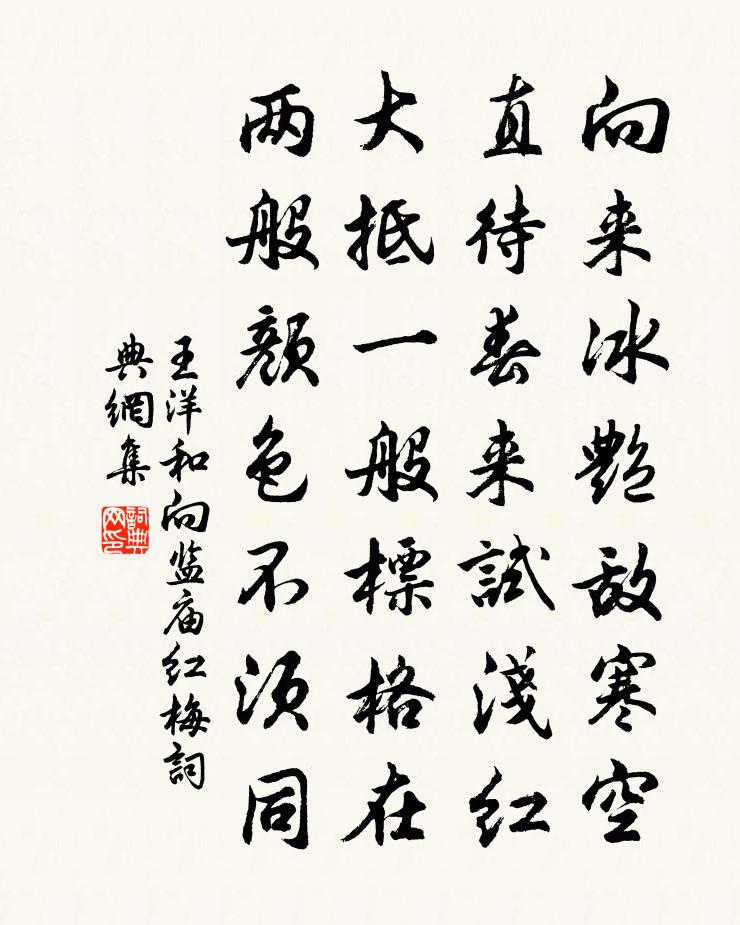 向来冰艷敌寒空
直待春来試淺红
大抵一般標格在
两般颜色不须同
王洋和向监庙红梅詞
典網集
詞典网印